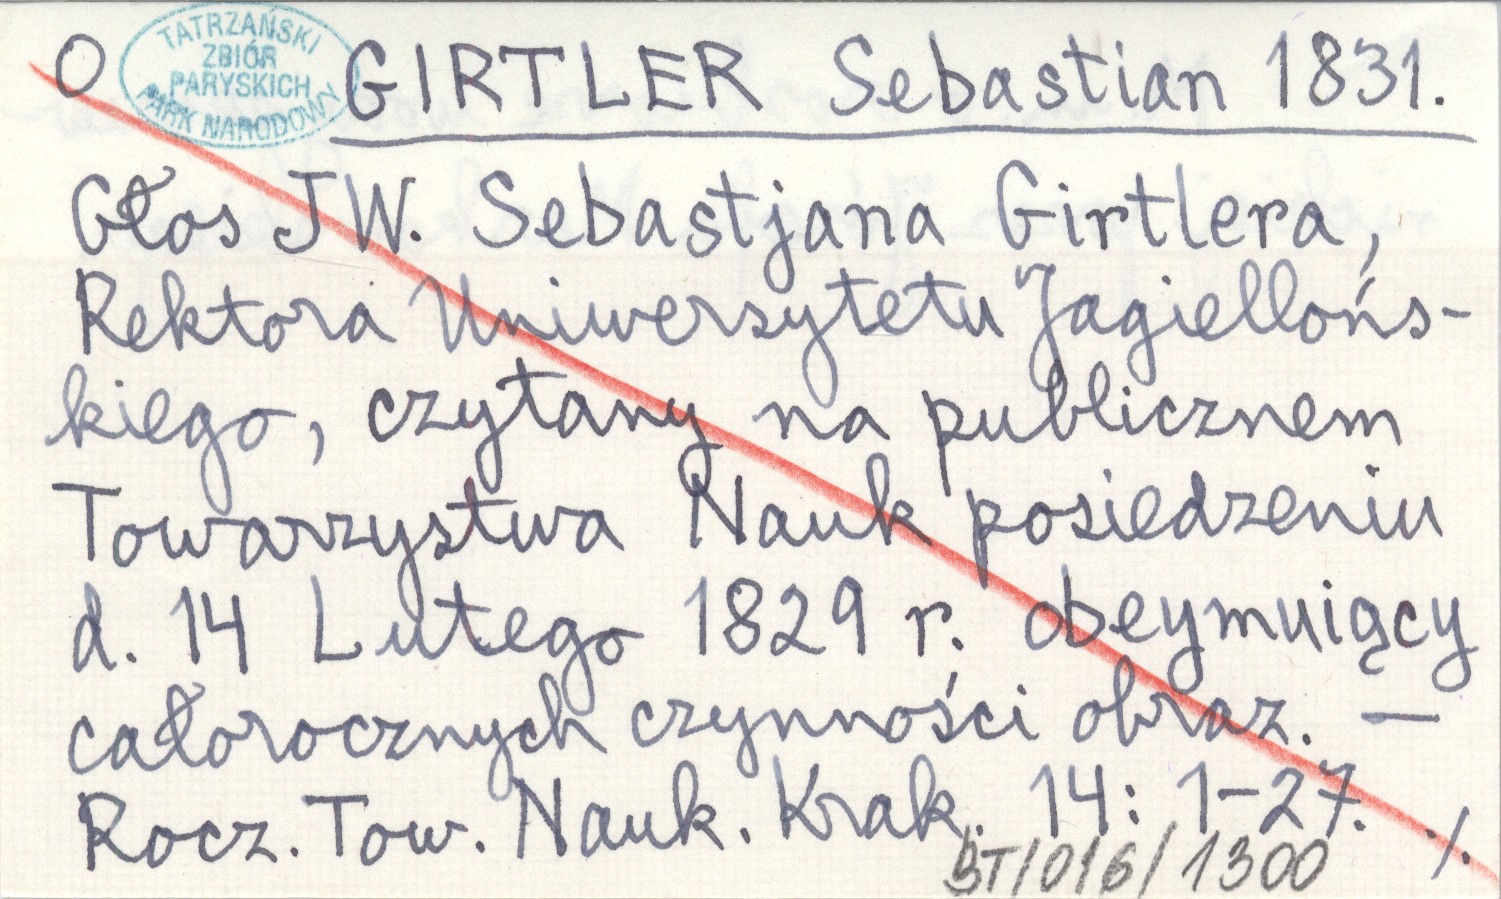 O
TATRZAŃSKI
ZBIÓR
PARYSKICH
PARK NARODOWY
GIRTLER Sebastian 1831.
Głos JW. Sebastjana Girtlera,
Rektora Uniwersytetu Jagiellońs-
kiego, czytany na publicznem
Towarzystwa Nauk posiedzeniu
d. 14 Lutego 1829 r. obeymuiący
całorocznych czynności obraz. —
Rocz. Tow. Nauk. Krak. 14: 1-27. ./.
BT/016/1300